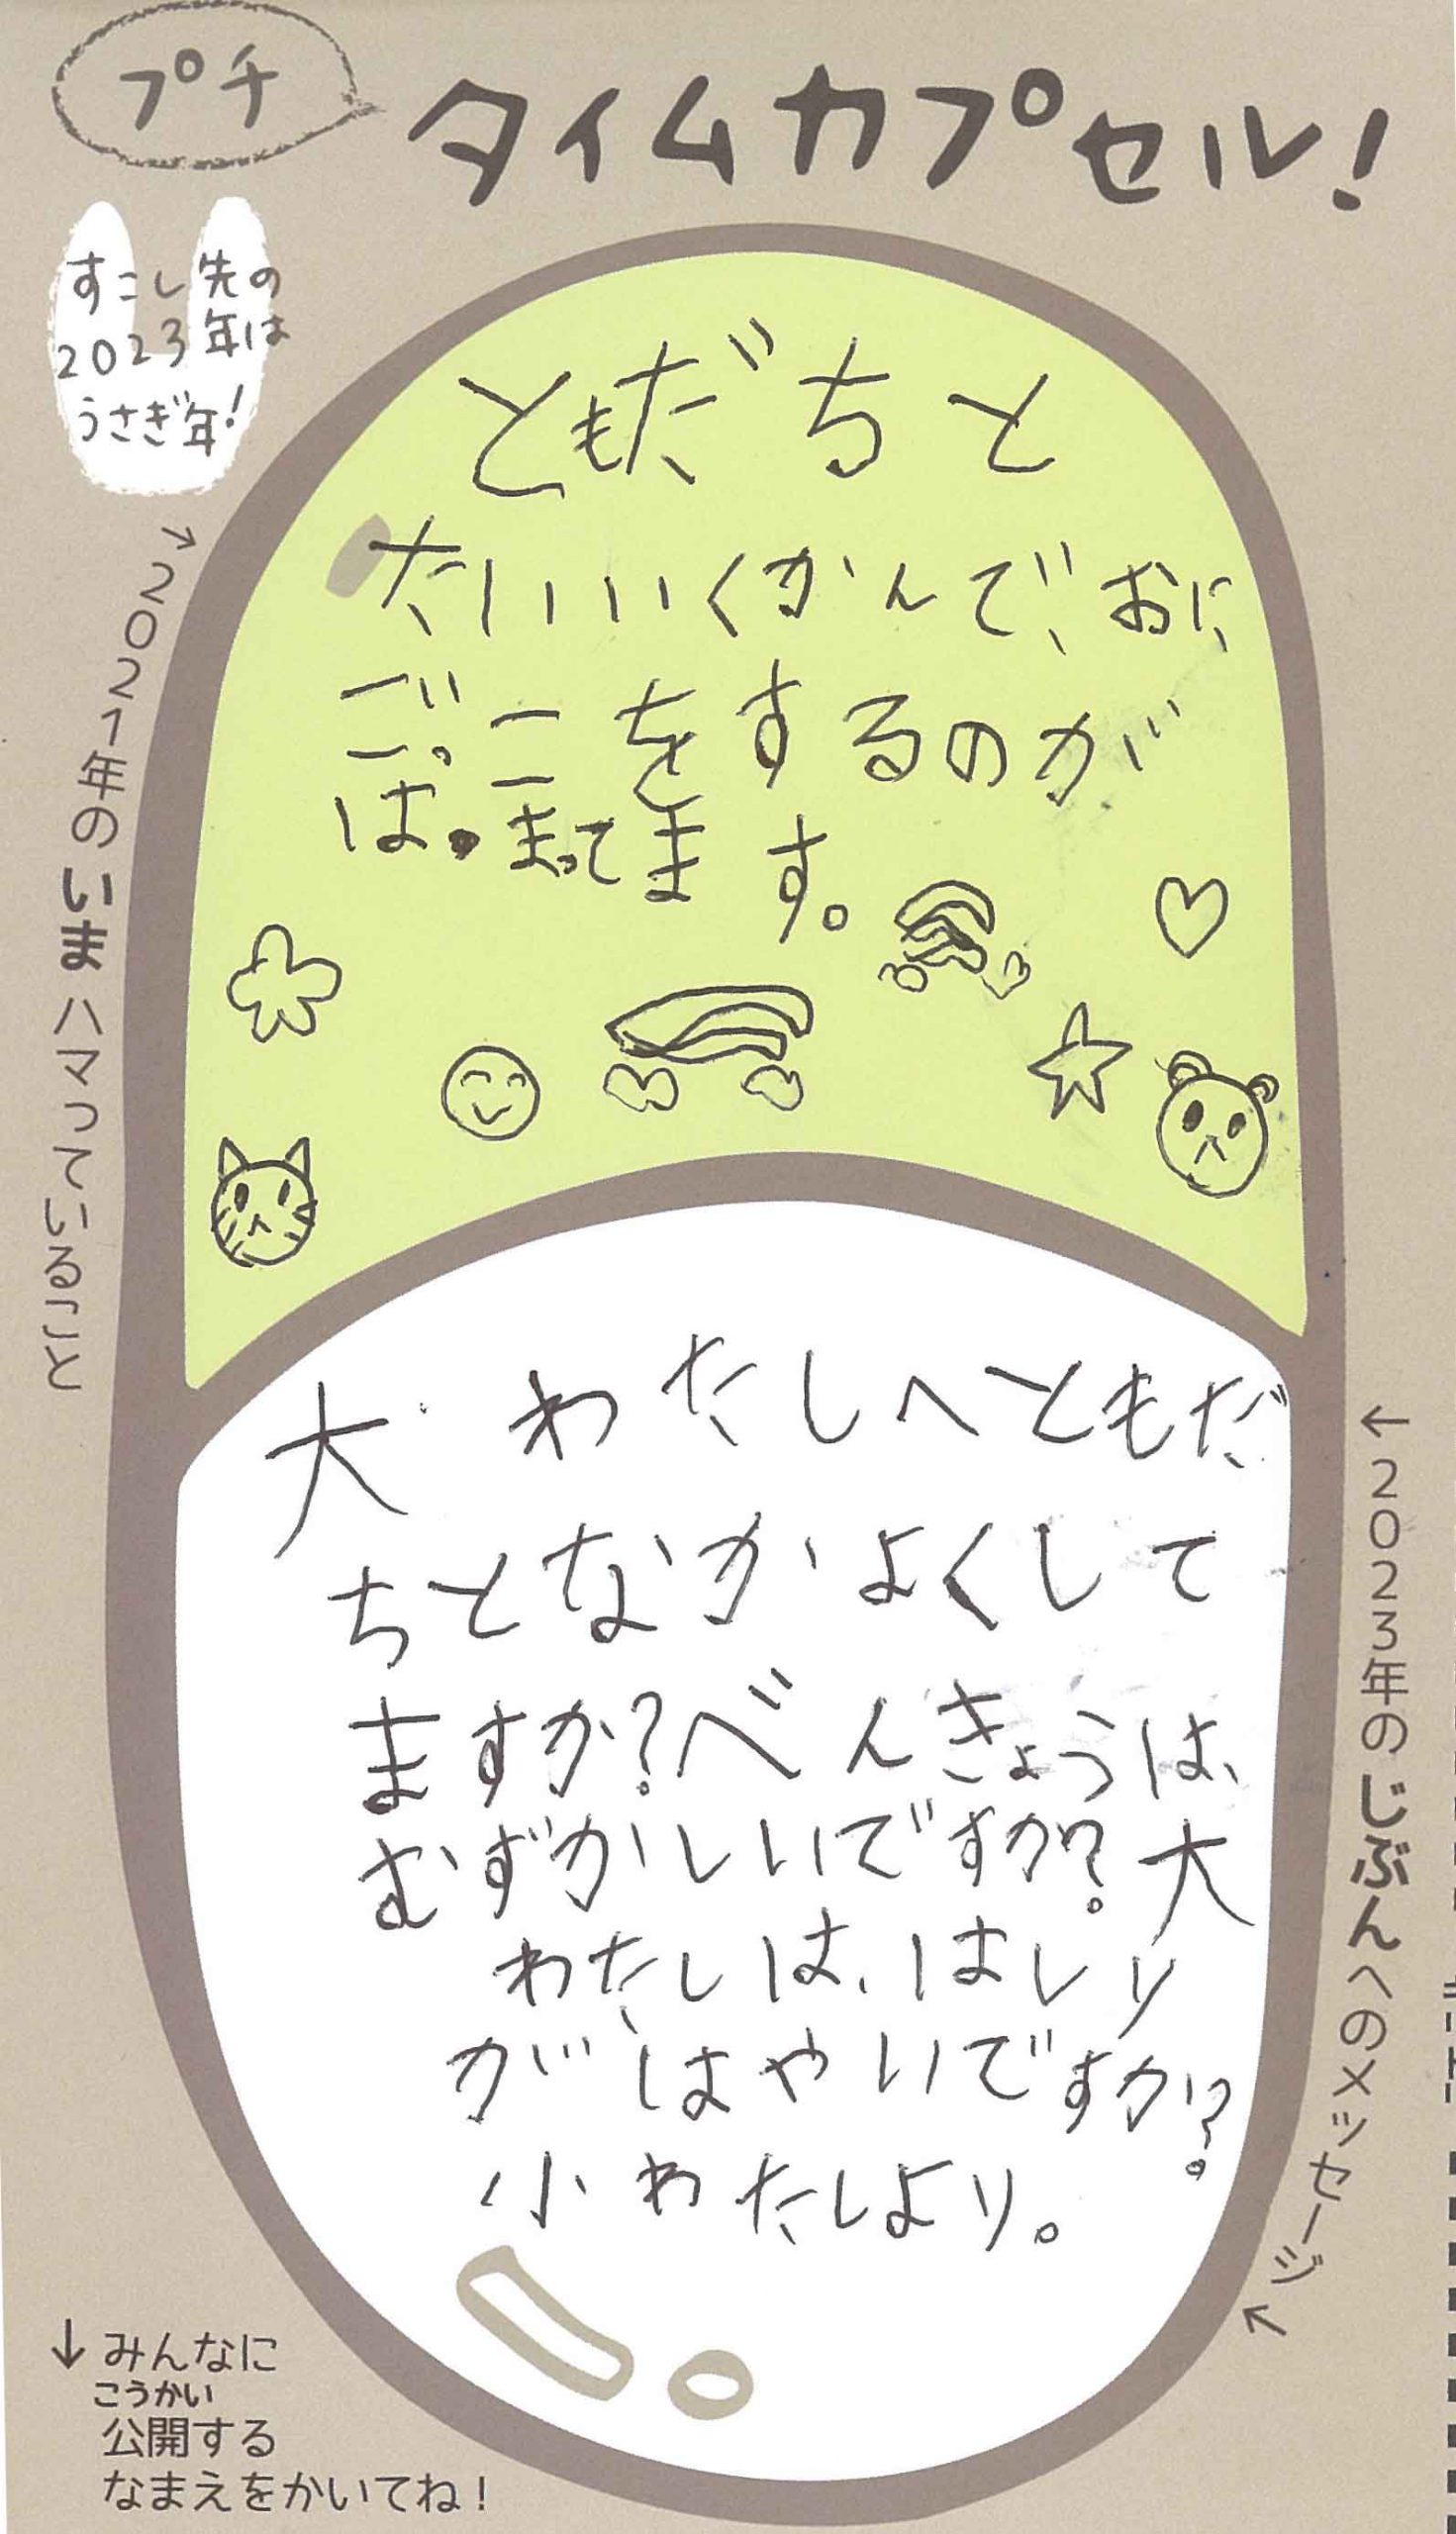 プチ
タイムカプセル!
すこし先の
2023年は
うさぎ年!
→2021年のいまハマっていること
ともだちと
たいいくかんで、おに
ごこをするのが
は、まってます。
大 わたしへともだ
ちとなかよくして
ますか?べんきょうは、
むずかしいですか?大
わたしは、はしり
がはやいですか?
小わたしより。
←2023年のじぶんへのメッセージ
↓みんなに
こうかい
公開する
なまえをかいてね!